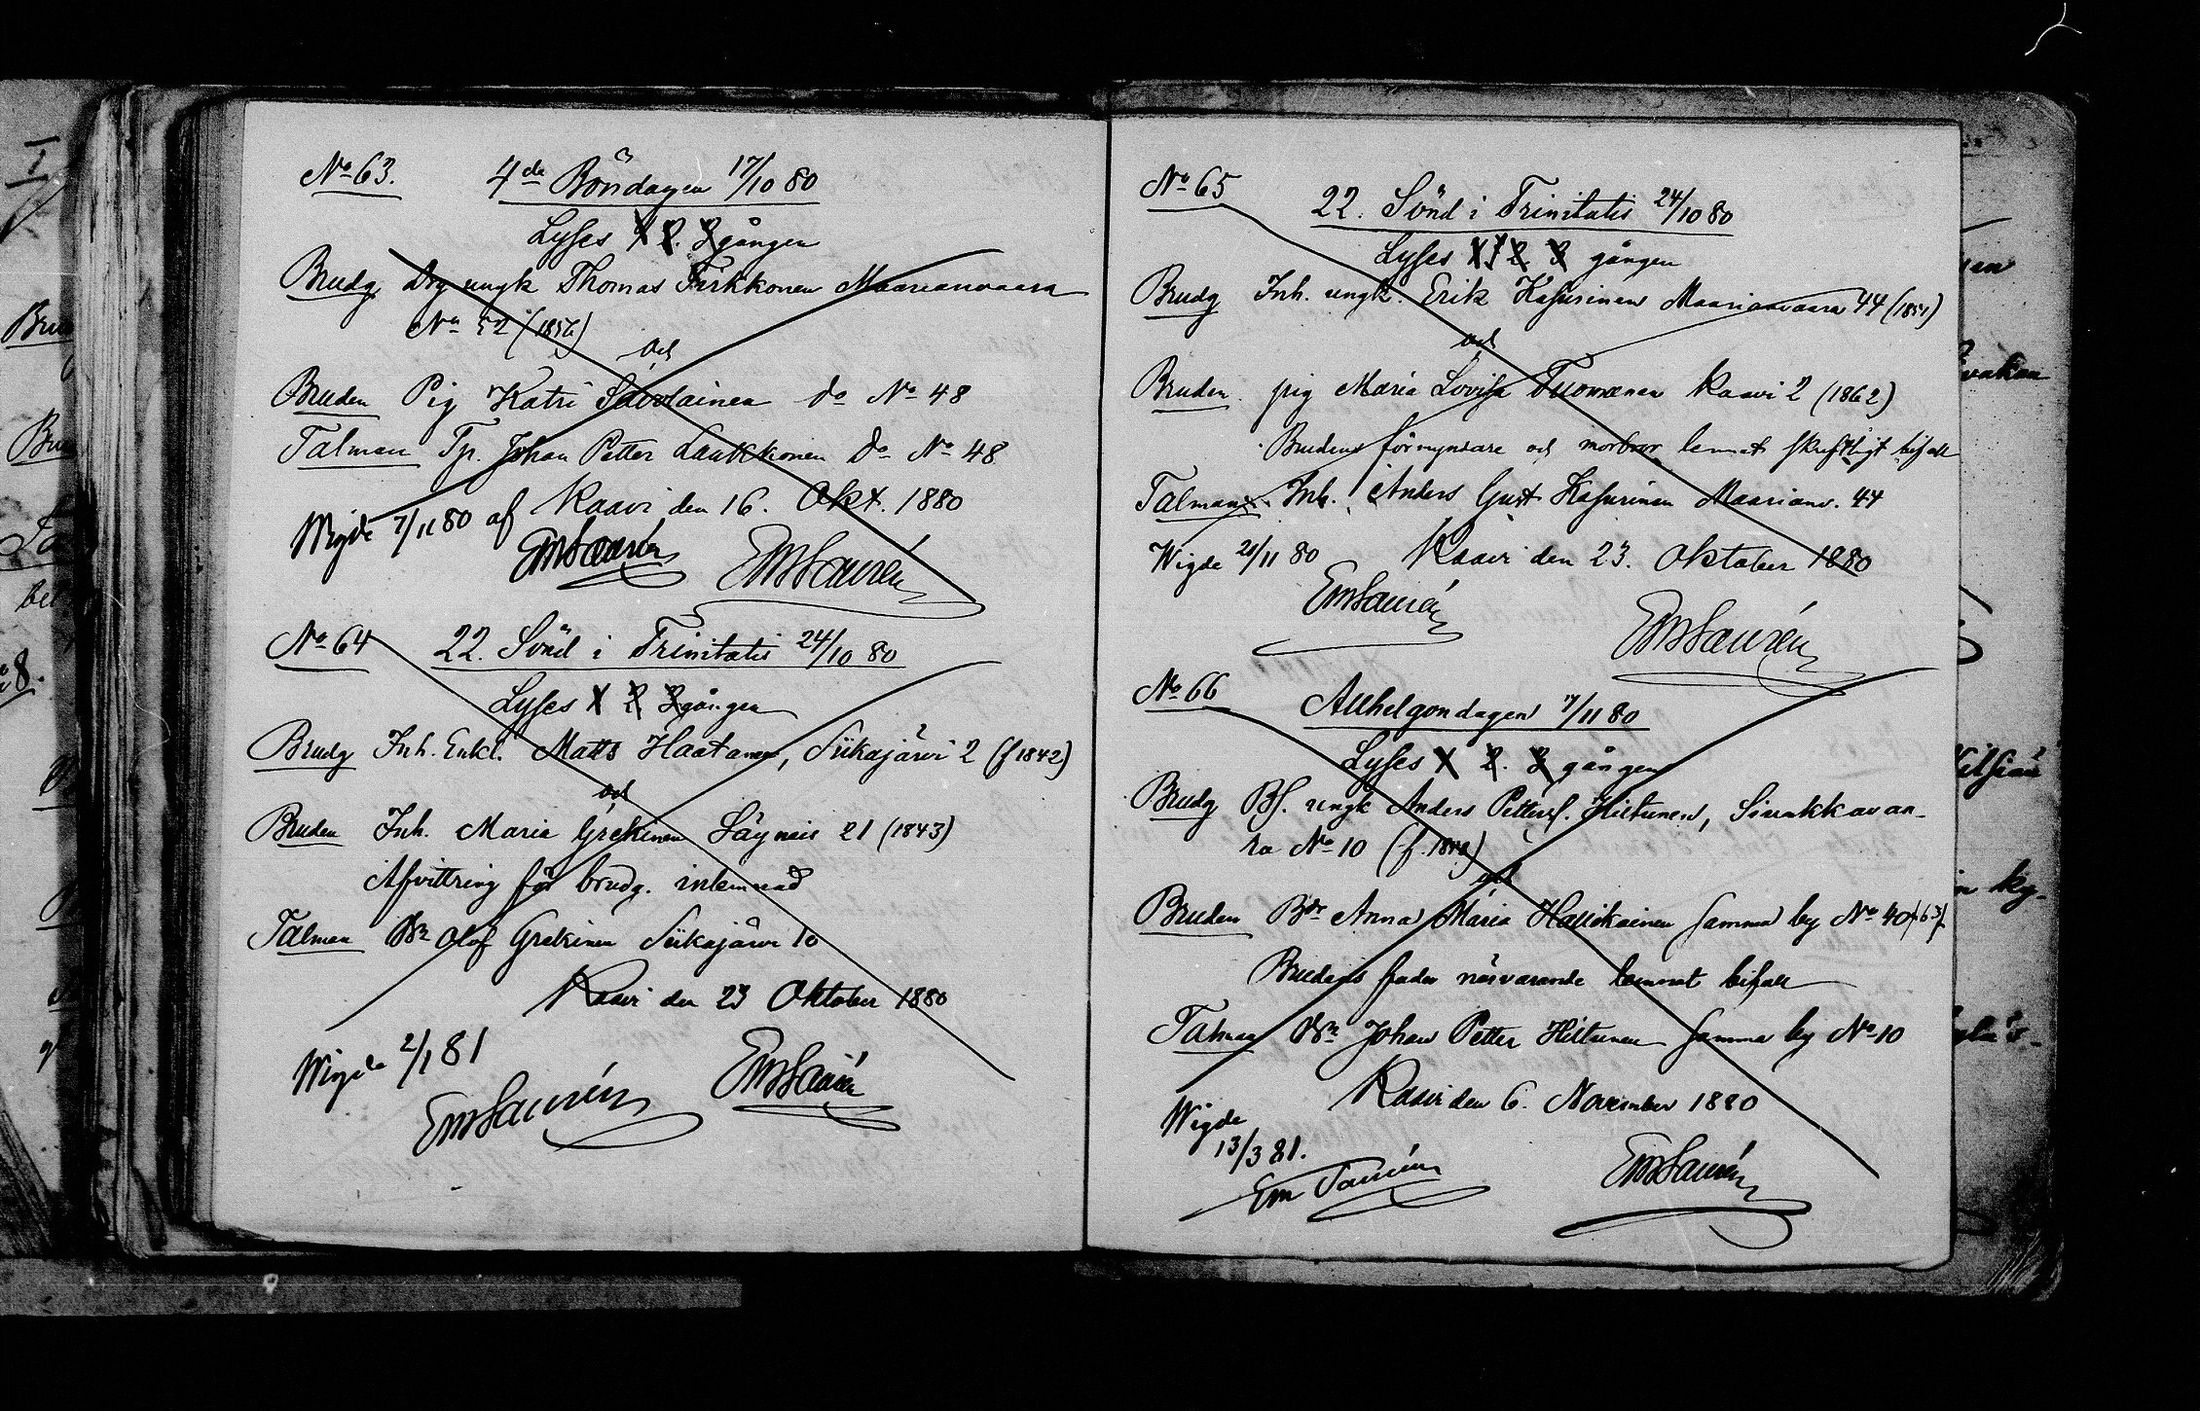 No 63.
4de Böndagen 17/10 80
Lyses 1 2. 3 gången
Brudg Drg ungk Thomas Tirkkonen Maarianvaara
No 52 (1856)
och
Bruden Pig Katri Savolainen do No 48
Talman Tp. Johan Petter Laukkonen Do No 48
Kaavi den 16. Okt. 1880
Wigde 7/11 80 af
EmSaurén EmSaurén
No 64
22. Sönd i Trinitatis 24/10 80
Lyses 1 2 3 gången
Brudg Inh. Enkl. Matts Haatanen, Siikajärvi 2 (f 1842)
och
Bruden Inh. Maria Grekinen Säyneis 21 (1843)
Afvittring för brudg. inlemnad
Talman Olof Grekinen Siikajärvi 10
Kaavi den 23 Oktober 1880
Wigde 2/1 81
EmSaurén EmSaurén
No 65
22. Sönd i Trinitatis 24/10 80
Lyses 1 2 3 gången
Brudg Inh. ungk. Erik Kasurinen Maarianvaara 44 (1851)
och
Bruden pig Maria Lovisa Tuomanen Kaavi 2 (1862)
Brudens förmyndare och morbror lemnat skriftligt bifall
Talman Inh. Anders Gust Kasurinen Maarianv. 44
Wigde 21/11 80 Kaavi den 23. Oktober 1880
EmSaurén
EmSaurén
No 66
Allhelgondagen 7/11 80
Lyses 1 2. 3 gången
Brudg Bs. ungk Anders Petterss. Hiltunen, Sivakkavaa-
ra No 10 (f.
och
Bruden Bdr Anna Maria Hallikainen samma by No 40
Brudens fader närvarande lemnat bifall
Talman Johan Petter Hiltunen samma by No 10
Kaavi den 6. November 1880
Wigde
13/3 81.
Em Saurén EmSaurén